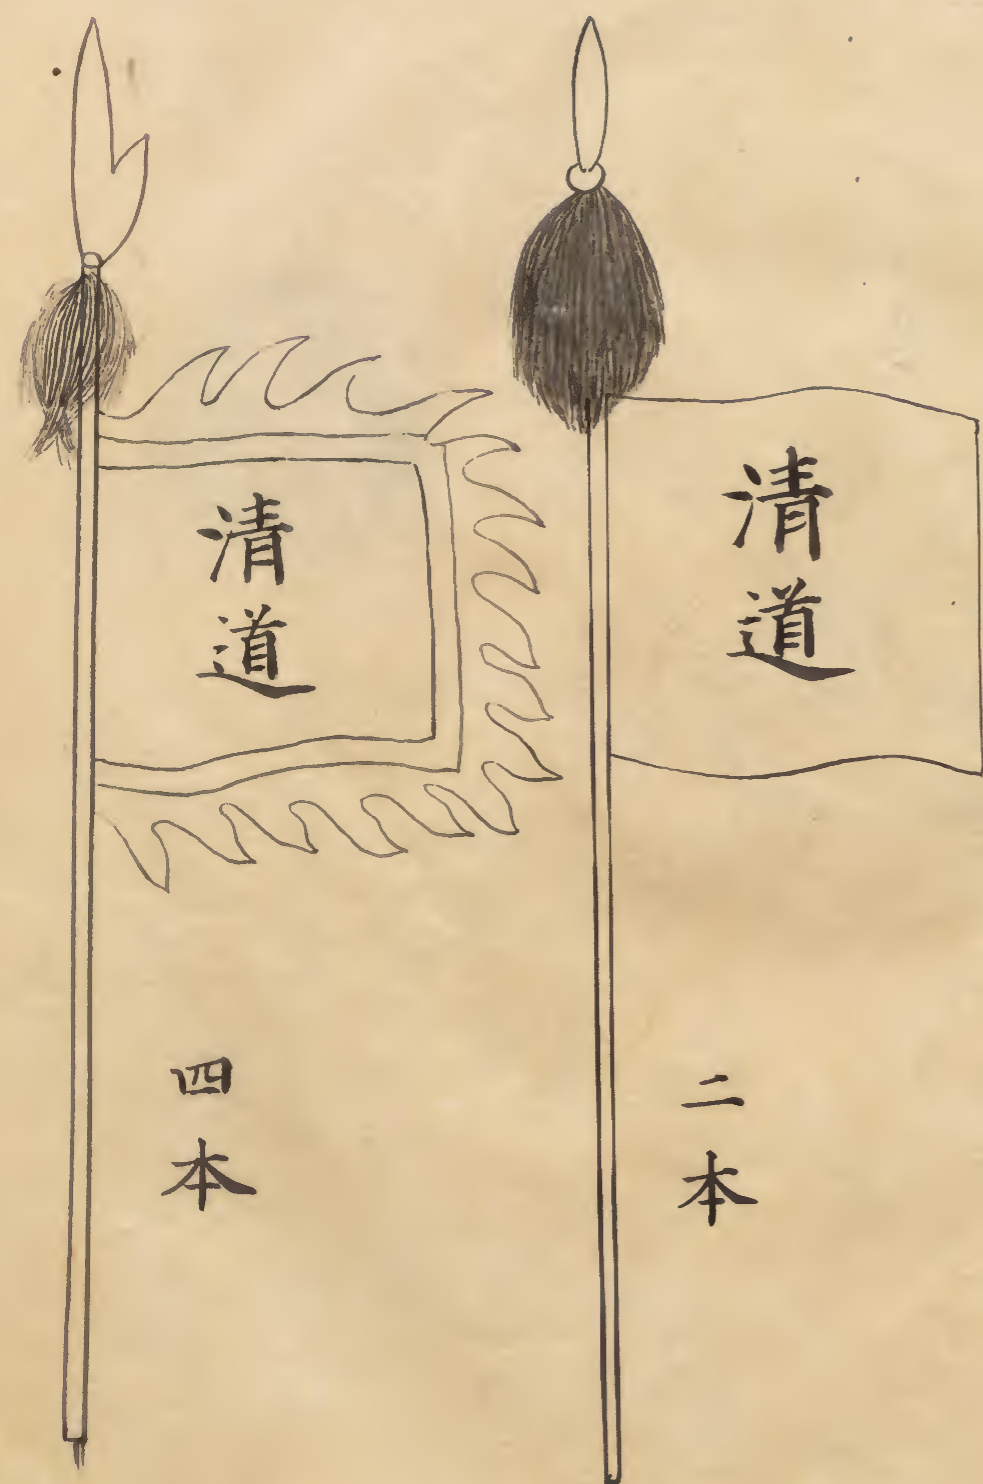 清道
二本
清道
四本